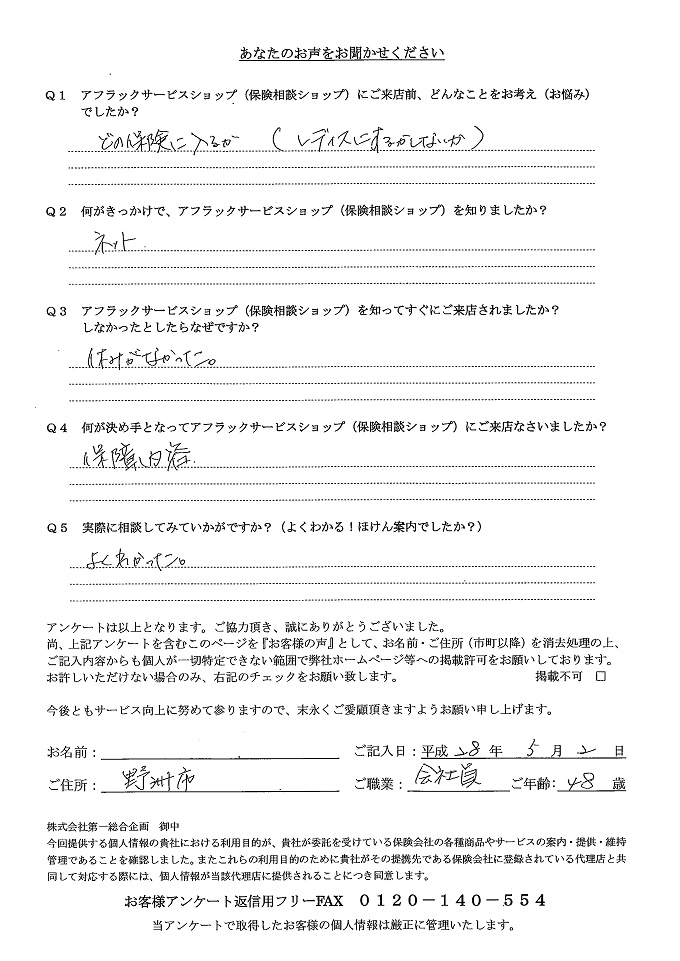 あなたのお声をお聞かせください
Q1 アフラックサービスショップ（保険相談ショップ）にご来店前、どんなことをお考え（お悩み）
でしたか？
どの保険に入るか （レディスにするかしないか）
Q2 何がきっかけで、アフラックサービスショップ（保険相談ショップ）を知りましたか？
ネット
Q3 アフラックサービスショップ（保険相談ショップ）を知ってすぐにご来店されましたか？
しなかったとしたらなぜですか？
休みがなかった。
Q4 何が決め手となってアフラックサービスショップ（保険相談ショップ）にご来店なさいましたか？
保障内容
Q5 実際に相談してみていかがですか？（よくわかる！ほけん案内でしたか？）
よくわかった。
アンケートは以上となります。ご協力頂き、誠にありがとうございました。
尚、上記アンケートを含むこのページを『お客様の声』として、お名前・ご住所（市町以降）を消去処理の上、
ご記入内容からも個人が一切特定できない範囲で弊社ホームページ等への掲載許可をお願いしております。
お許しいただけない場合のみ、右記のチェックをお願い致します。 掲載不可 □
今後ともサービス向上に努めて参りますので、末永くご愛顧頂きますようお願い申し上げます。
お名前： ご記入日：平成 28 年 5 月 2 日
ご住所： 野洲市 ご職業： 会社員 ご年齢： 48 歳
株式会社第一総合企画 御中
今回提供する個人情報の貴社における利用目的が、貴社が委託を受けている保険会社の各種商品やサービスの案内・提供・維持
管理であることを確認しました。またこれらの利用目的のために貴社がその提携先である保険会社に登録されている代理店と共
同して対応する際には、個人情報が当該代理店に提供されることにつき同意します。
お客様アンケート返信用フリーFAX 0120－140－554
当アンケートで取得したお客様の個人情報は厳正に管理いたします。